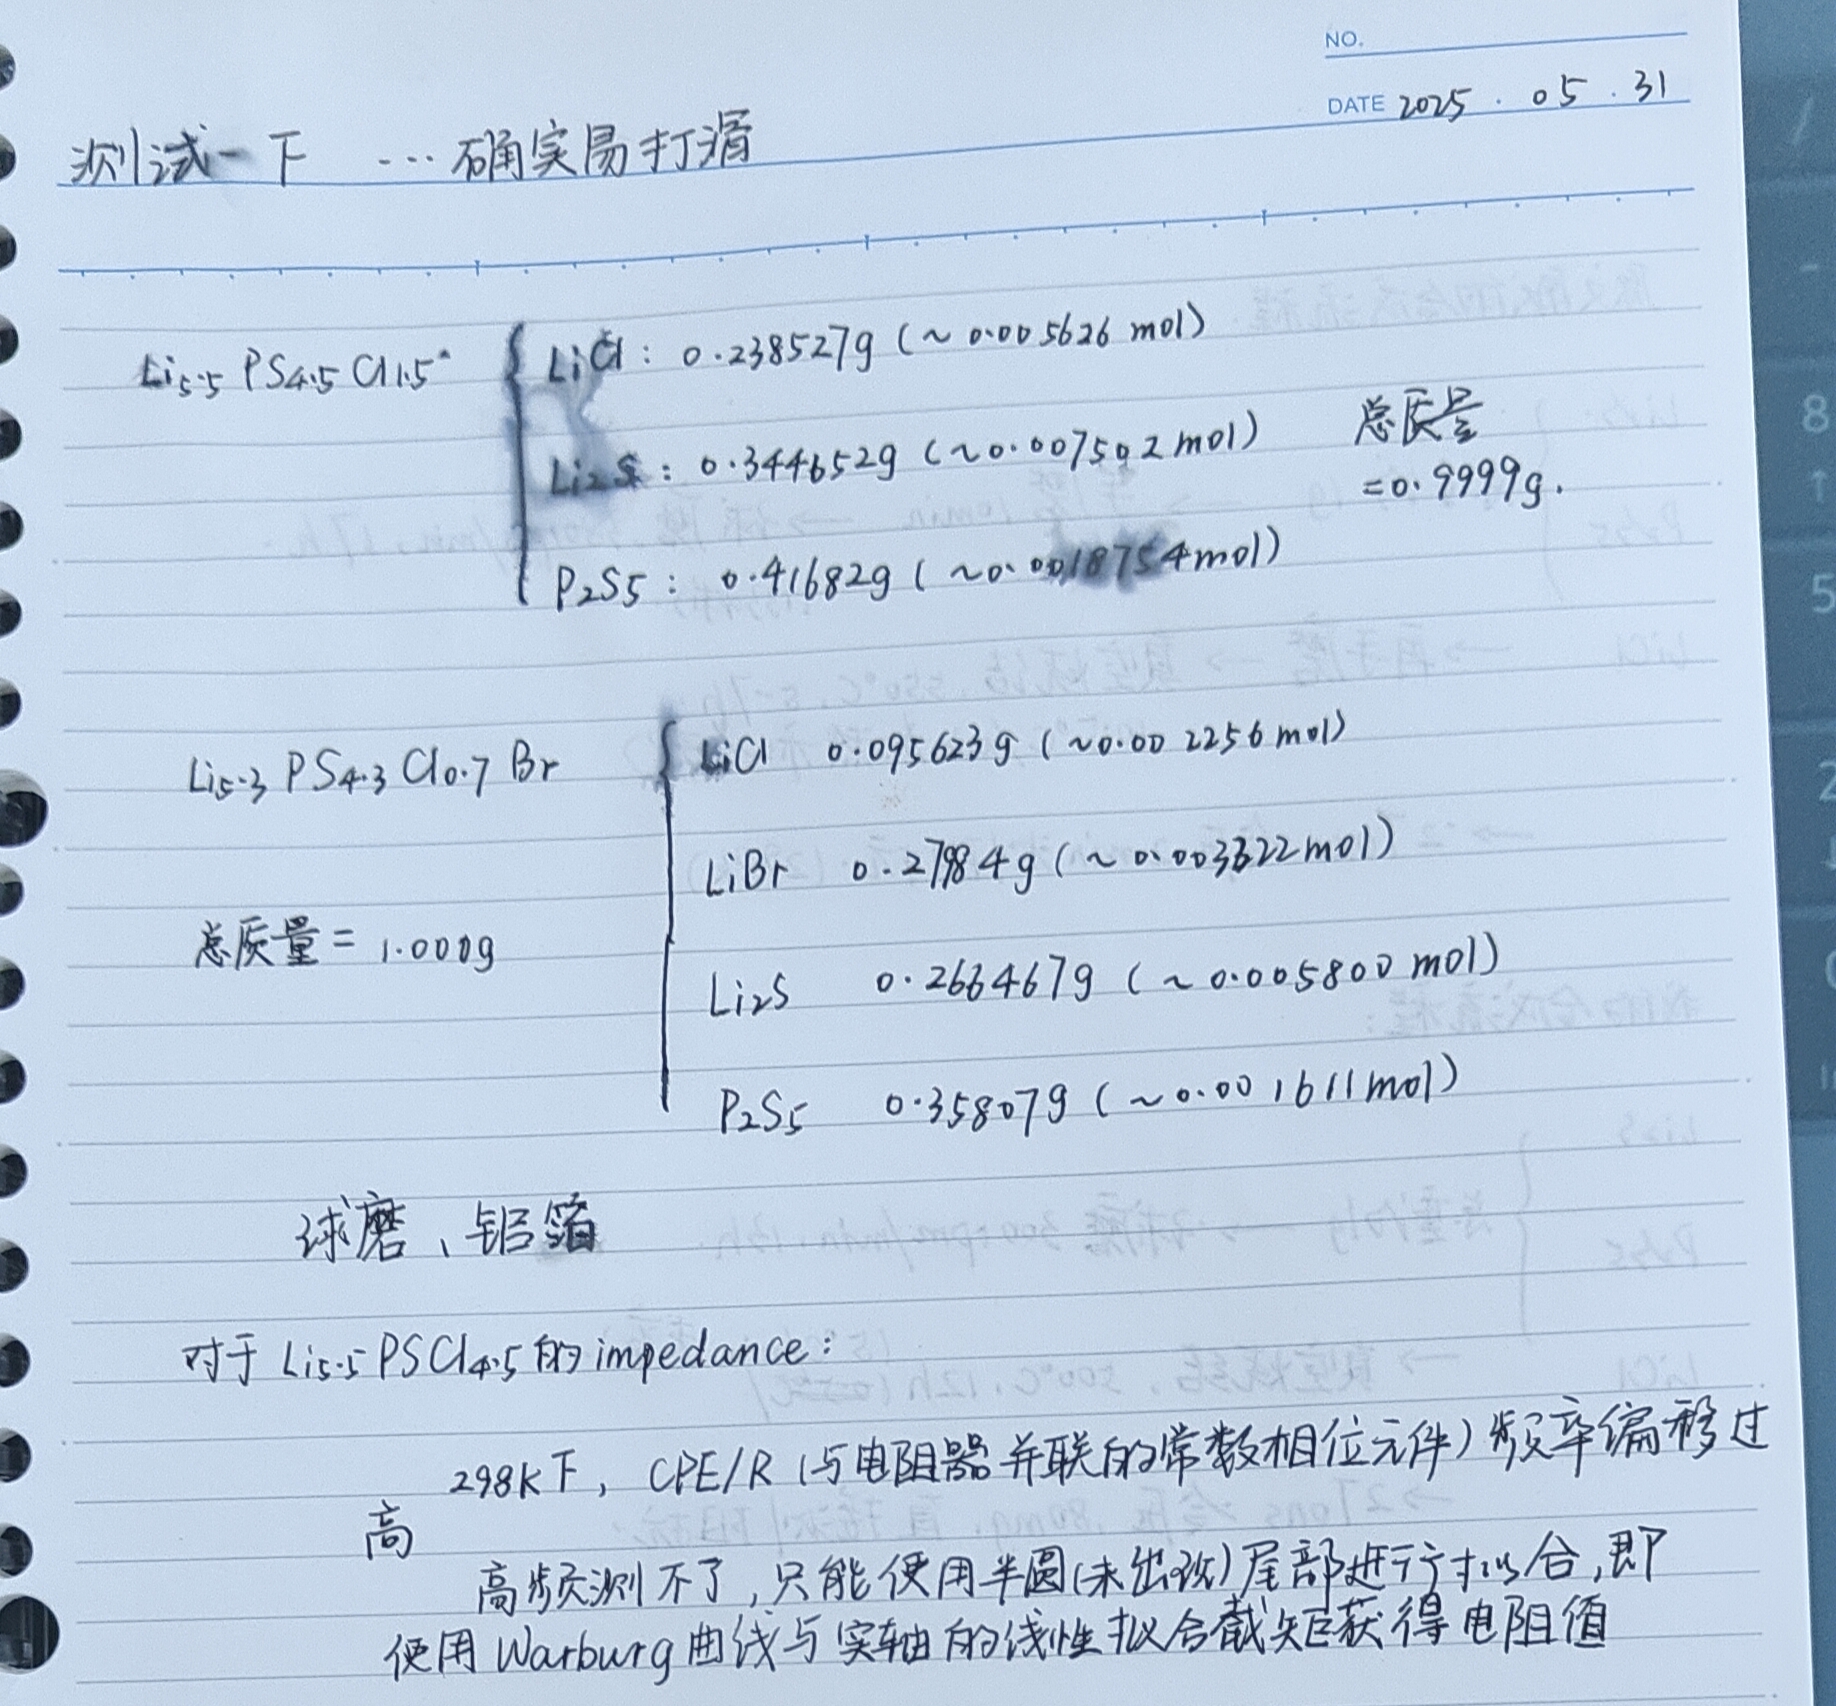 NO.
DATE 2025 . 05 . 31
测试一下 … 确实易打滑
Li5.5 PS4.5 Cl1.5
LiCl: 0.238527g (~0.005626 mol)
Li2S: 0.344652g (~0.007502 mol)
总质量
=0.9999g.
P2S5: 0.41682g (~0.0018754mol)
Li5.3 PS4.3 Cl0.7 Br
LiCl 0.095623g (~0.002256 mol)
LiBr 0.27984g (~0.003222mol)
总质量= 1.000g
Li2S 0.266467g (~0.005800 mol)
P2S5 0.35807g (~0.001611mol)
球磨、铝箔
对于 Li5.5 PSCl4.5 的 impedance:
298K下, CPE/R (与电阻器并联的常数相位元件) 频率偏移过
高
高频测不了,只能使用半圆(未出现)尾部进行拟合,即
使用 Warburg 曲线与实轴的线性拟合截矩获得电阻值
8
5
2